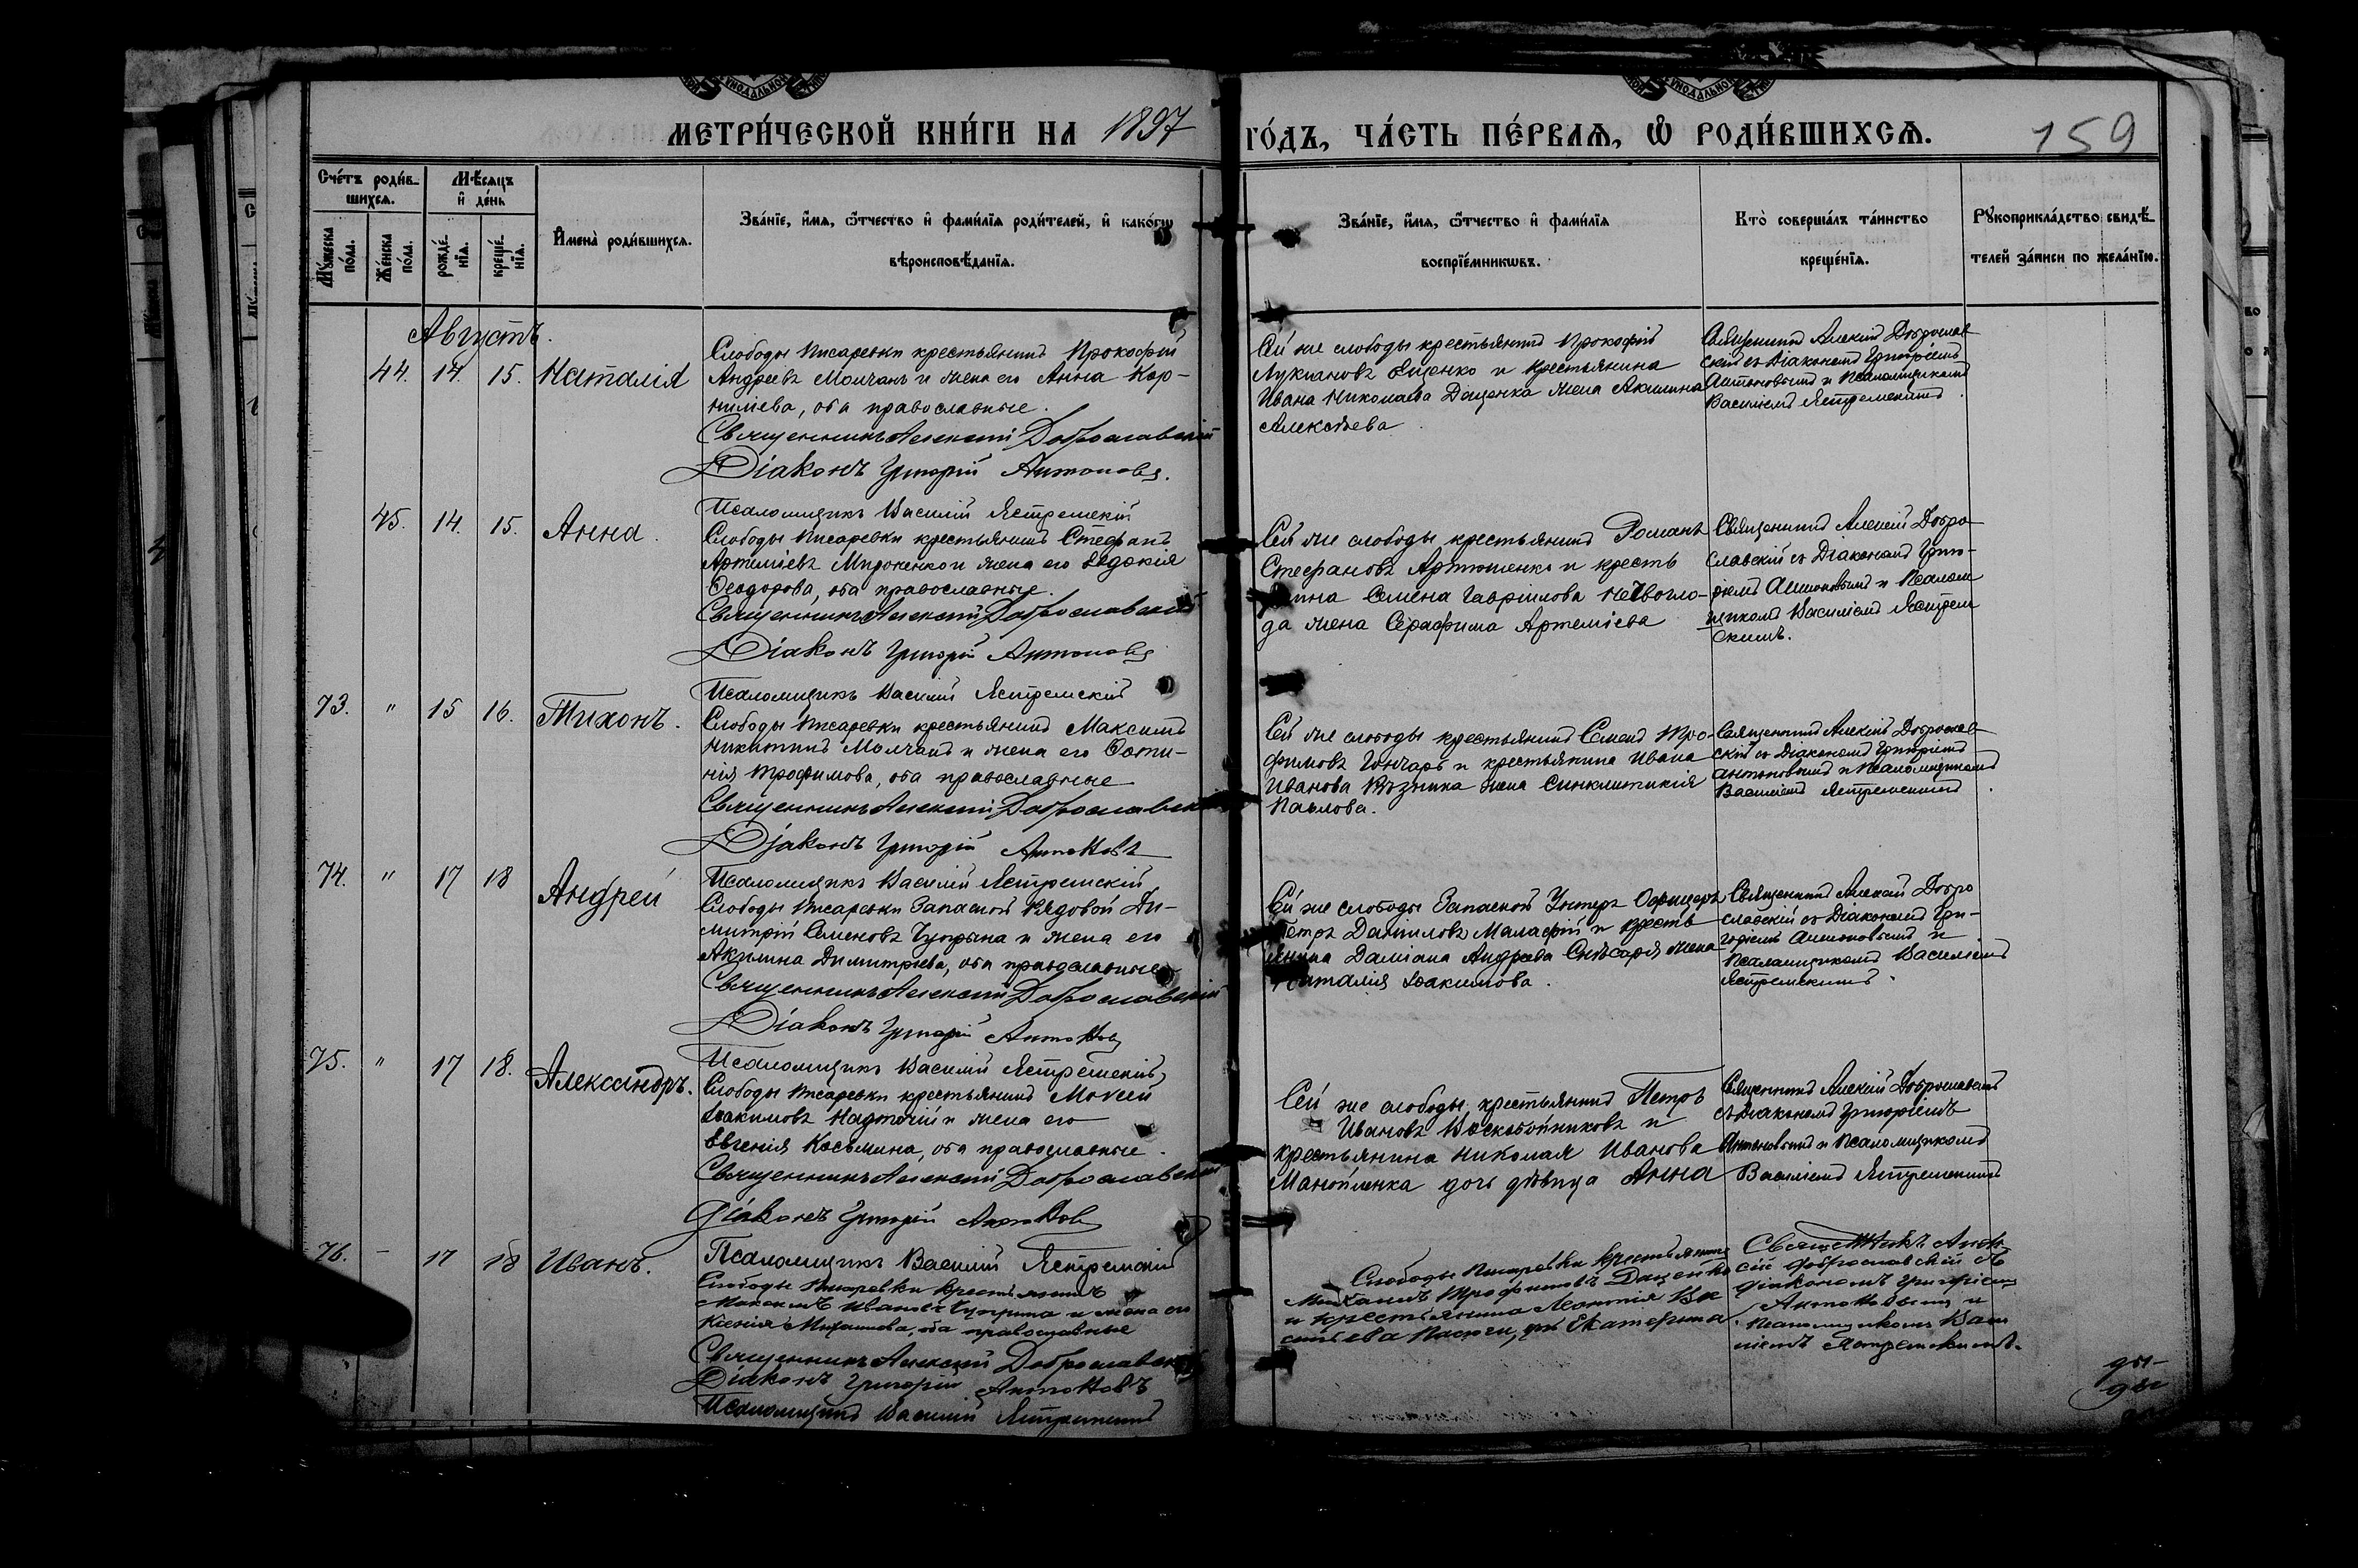 МЕТРИ́ЧЕСКОЙ КНИ́ГИ НА 1897 ГО́ДЪ, ЧА́СТЬ ПЕ́РВАЯ, Ѡ РОДИ́ВШИХСЯ.
159
Сче́тъ роди́в-
шихся.
Мꙋжеска
по́ла.
Же́нска
по́ла.
Мѣ́сяцъ
и де́нь
рожде́-
нїя.
креще́-
нїя.
Имена̀ роди́вшихся.
Зва́нїе, и́мя, ѻ́тчество и фами́лїя роди́телей, и како́гѡ
вѣроисповѣ́данїя.
Зва́нїе, и́мя, ѻ́тчество и фами́лїя
воспрїе́мникѡвъ.
Кто̀ соверша́лъ та́инство
креще́нїя.
Рꙋкоприкла́дство свидѣ́-
телей за́писи по жела́нїю.
Августъ.
44. 14. 15. Наталія
Слободы Писаревки крестьянинъ Прокофій
Андреевъ Молчанъ и жена его Анна Кор-
ниліева, оба православные.
Священникъ Алексій Доброславскій
Діаконъ Григорій Антоновъ.
Псаломщикъ Василій Ястремскій
Сей же слободы крестьянинъ Прокофій
Лукіановъ Яценко и крестьянина
Ивана Николаева Даценка жена Акилина
Алексѣева
Священникъ Алексій Доброслав
скій съ Діакономъ Григоріемъ
Антоновымъ и Псаломщикомъ
Василіемъ Ястремскимъ.
45. 14. 15. Анна.
Слободы Писаревки крестьянинъ Стефанъ
Артеміевъ Мироненко и жена его Евдокія
Ѳеодорова, оба православные.
Священникъ Алексій Доброславскій
Діаконъ Григорій Антоновъ
Псаломщикъ Василій Ястремскій
Сей же слободы крестьянинъ Романъ
Стефановъ Артюшенко и кресть
янина Семена Гавріилова
да жена Серафима Артеміева
Священникъ Алексій Добро
славскій съ Діакономъ Григо-
ріемъ Антоновымъ и Псалом
щикомъ Василіемъ Ястрем
скимъ.
73. " 15 16. Тихонъ.
Слободы Писаревки крестьянинъ Максимъ
Никитинъ Молчанъ и жена его Фоти-
нія Трофимова, оба православные
Священникъ Алексій Доброславскій
Діаконъ Григорій Антоновъ
Псаломщикъ Василій Ястремскій
Сей же слободы крестьянинъ Семенъ Тро-
фимовъ Гончаръ и крестьянина Ивана
Иванова жена Синклитикія
Павлова.
Священникъ Алексій Доброслав
скій съ Діакономъ Григоріемъ
Антоновымъ и Псаломщикомъ
Василіемъ Ястремскимъ.
74. " 17 18 Андрей
Слободы Писаревки Запасной Рядовой Ди-
митрій Семеновъ Чуприна и жена его
Акилина Димитріева, оба православные
Священникъ Алексій Доброславскій
Діаконъ Григорій Антоновъ
Псаломщикъ Василій Ястремскій
Сей же слободы Запасной Унтеръ Офицеръ
Петръ Даніиловъ Малафій и кресть
янина Даміана Андреева Слѣсаря жена
Наталія Іоакимова.
Священникъ Алексій Добро
славскій съ Діакономъ Гри-
горіемъ Антоновымъ и
Псаломщикомъ Василіемъ
Ястремскимъ.
75. " 17 18. Александръ.
Слободы Писаревки крестьянинъ Моисей
Іоакимовъ Надточій и жена его
Евгенія Косьмина, оба православные.
Священникъ Алексій Доброславскій
Діаконъ Григорій Антоновъ
Псаломщикъ Василій Ястремскій
Сей же слободы крестьянинъ Петръ
Ивановъ Воскобойниковъ и
крестьянина Николая Иванова
дочь дѣвица Анна
Священникъ Алексій Доброславскій
съ Діакономъ Григоріемъ
Антоновымъ и Псаломщикомъ
Василіемъ Ястремскимъ
76. - 17 18 Иванъ.
Слободы Писаревки крестьянинъ
Максимъ Ивановъ Чуприна и жена его
Ксенія Михаилова, оба православные
Священникъ Алексій Доброславскій
Діаконъ Григорій Антоновъ
Псаломщикъ Василій Ястремскій
Слободы Писаревки крестьянинъ
Михаилъ Трофимовъ Даценко
и крестьянина Леонтія Ва
сильева Екатерина.
Священникъ Алек
сій Доброславскій съ
діакономъ Григоріемъ
Антоновымъ и
Псаломщикомъ Васи
ліемъ Ястремскимъ.